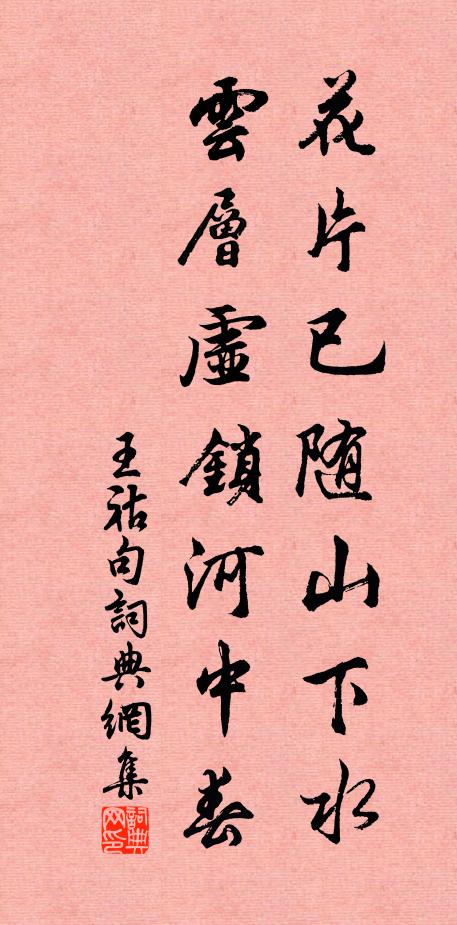 花片已随山下水
雲層虛鎖河中春
王祜句詞典網集
詞典网印